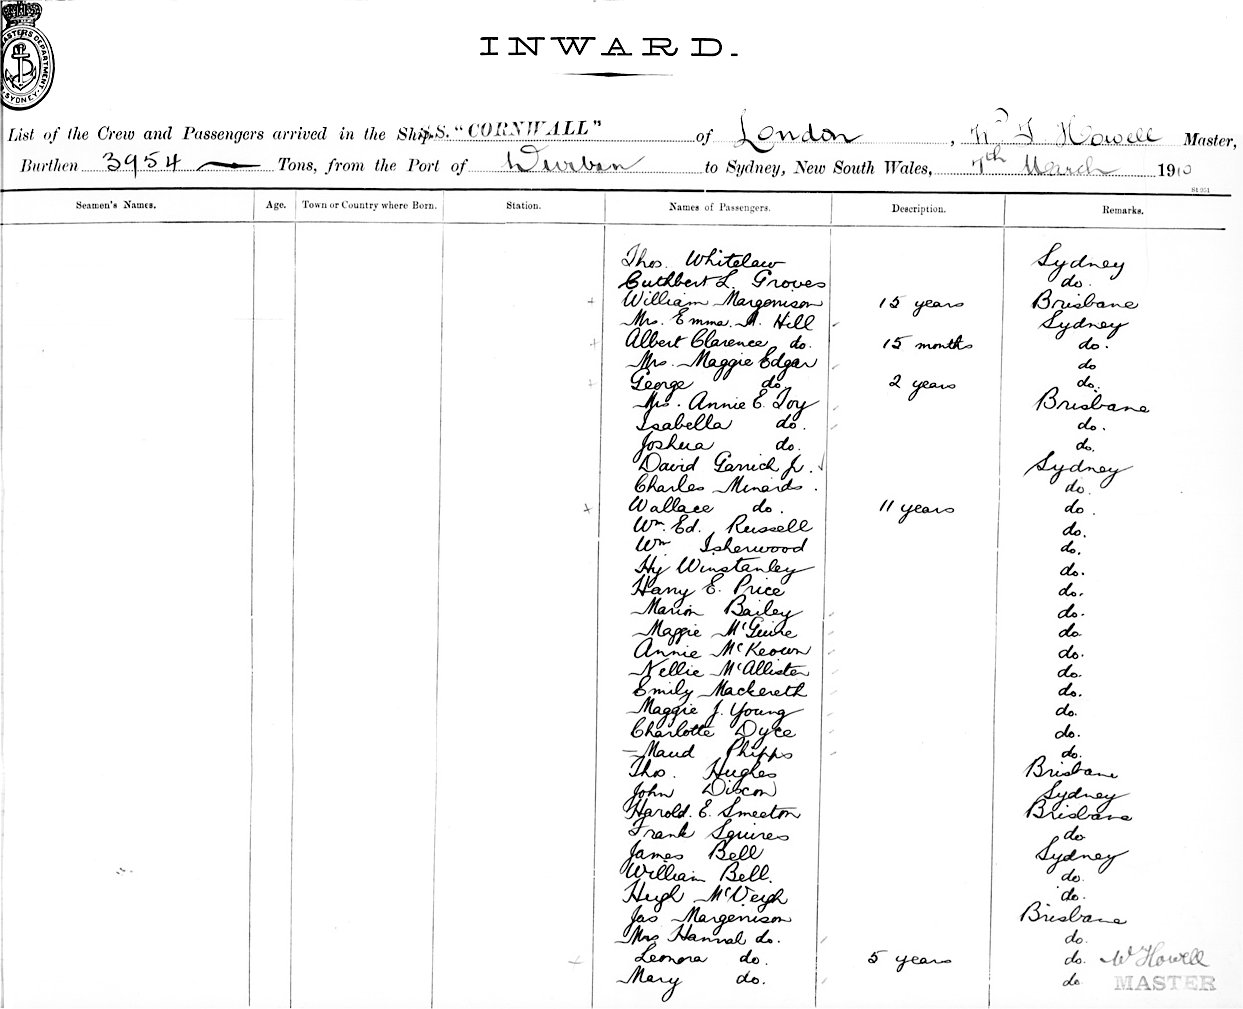 MASTERS DEPARTMENT SYDNEY
INWARD.
List of the Crew and Passengers arrived in the Ship S.S. "CORNWALL" of London, Howell Master,
Burthen 3954 Tons, from the Port of Durban to Sydney, New South Wales, 7th March 1910
Seamen's Names. Age. Town or Country where Born. Station. Names of Passengers. Description. Remarks.
Thos. Whitelaw Sydney
Cuthbert L. Groves do.
William Margenison 15 years Brisbane
Mrs. Emma A. Hill Sydney
Albert Clarence do. 15 months do.
Mrs. Maggie Edgar do
George do. 2 years do.
Mrs. Annie E. Toy Brisbane
Isabella do. do.
Joshua do. do.
David Garrick Jr. Sydney
Charles Minards. do.
Wallace do. 11 years do.
Wm. Ed. Russell do.
Wm Isherwood do.
Hy Winstanley do.
Harry E. Price do.
Marion Bailey do.
Maggie McGuire do.
Annie McKeown do.
Nellie McAllister do.
Emily Mackereth do.
Maggie J. Young do.
Charlotte Dyce do.
Maud Phipps do.
Thos. Hughes Brisbane
John Dixon Sydney
Harold. E. Smeeton Brisbane
Frank Squires do
James Bell Sydney
William Bell. do.
Hugh McVeigh do.
Jas Margenison Brisbane
Mrs Hannah do. do.
Leonora do. 5 years do. W Howell
Mary do. do MASTER